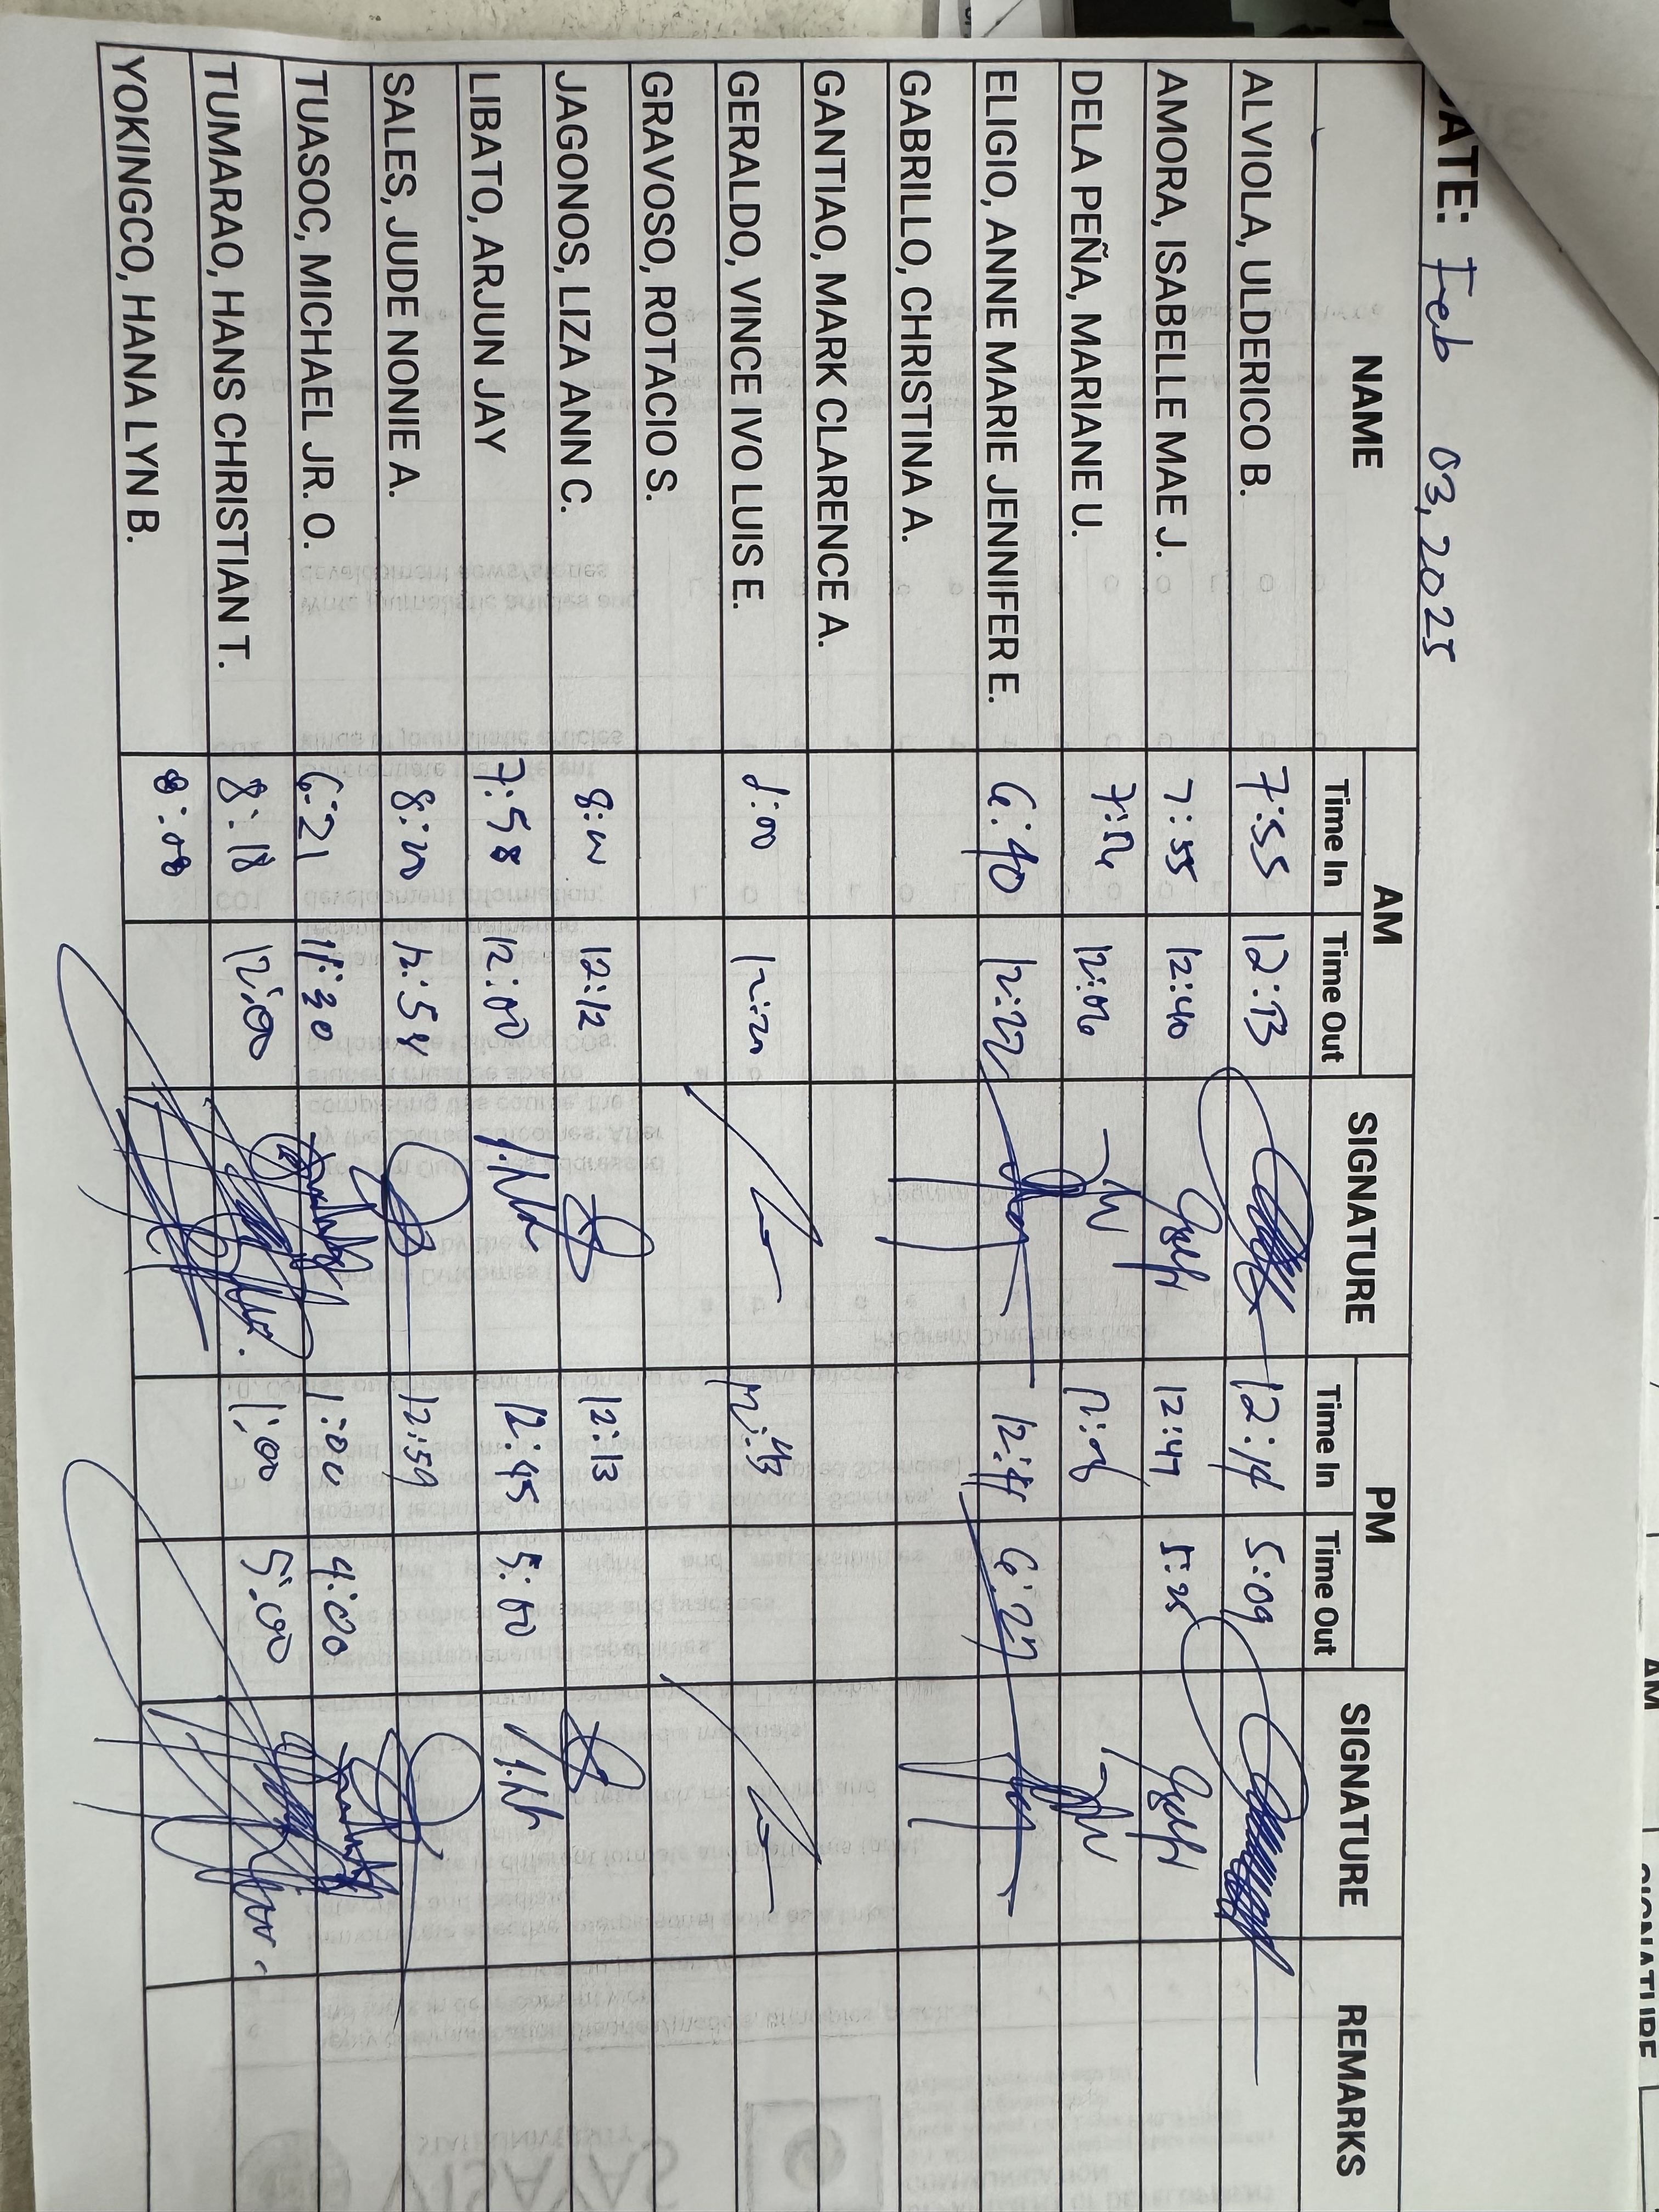 DATE: Feb 03, 2025
NAME AM SIGNATURE PM SIGNATURE REMARKS
Time In Time Out Time In Time Out
ALVIOLA, ULDERICO B. 7:55 12:13 12:14 5:09
AMORA, ISABELLE MAE J. 7:55 12:40 12:47 5:25
DELA PEÑA, MARIANE U. 12:06
ELIGIO, ANNE MARIE JENNIFER E. 6:40 12:22 6:27
GABRILLO, CHRISTINA A.
GANTIAO, MARK CLARENCE A.
GERALDO, VINCE IVO LUIS E. 12:20 12:43
GRAVOSO, ROTACIO S.
JAGONOS, LIZA ANN C. 8:00 12:12 12:13
LIBATO, ARJUN JAY 7:58 12:00 12:45 5:00
SALES, JUDE NONIE A. 8:20 12:54 12:59
TUASOC, MICHAEL JR. O. 6:21 11:30 1:00 4:00
TUMARAO, HANS CHRISTIAN T. 8:18 12:00 1:00 5:00
YOKINGCO, HANA LYN B. 8:08
AM
SIGNATURE